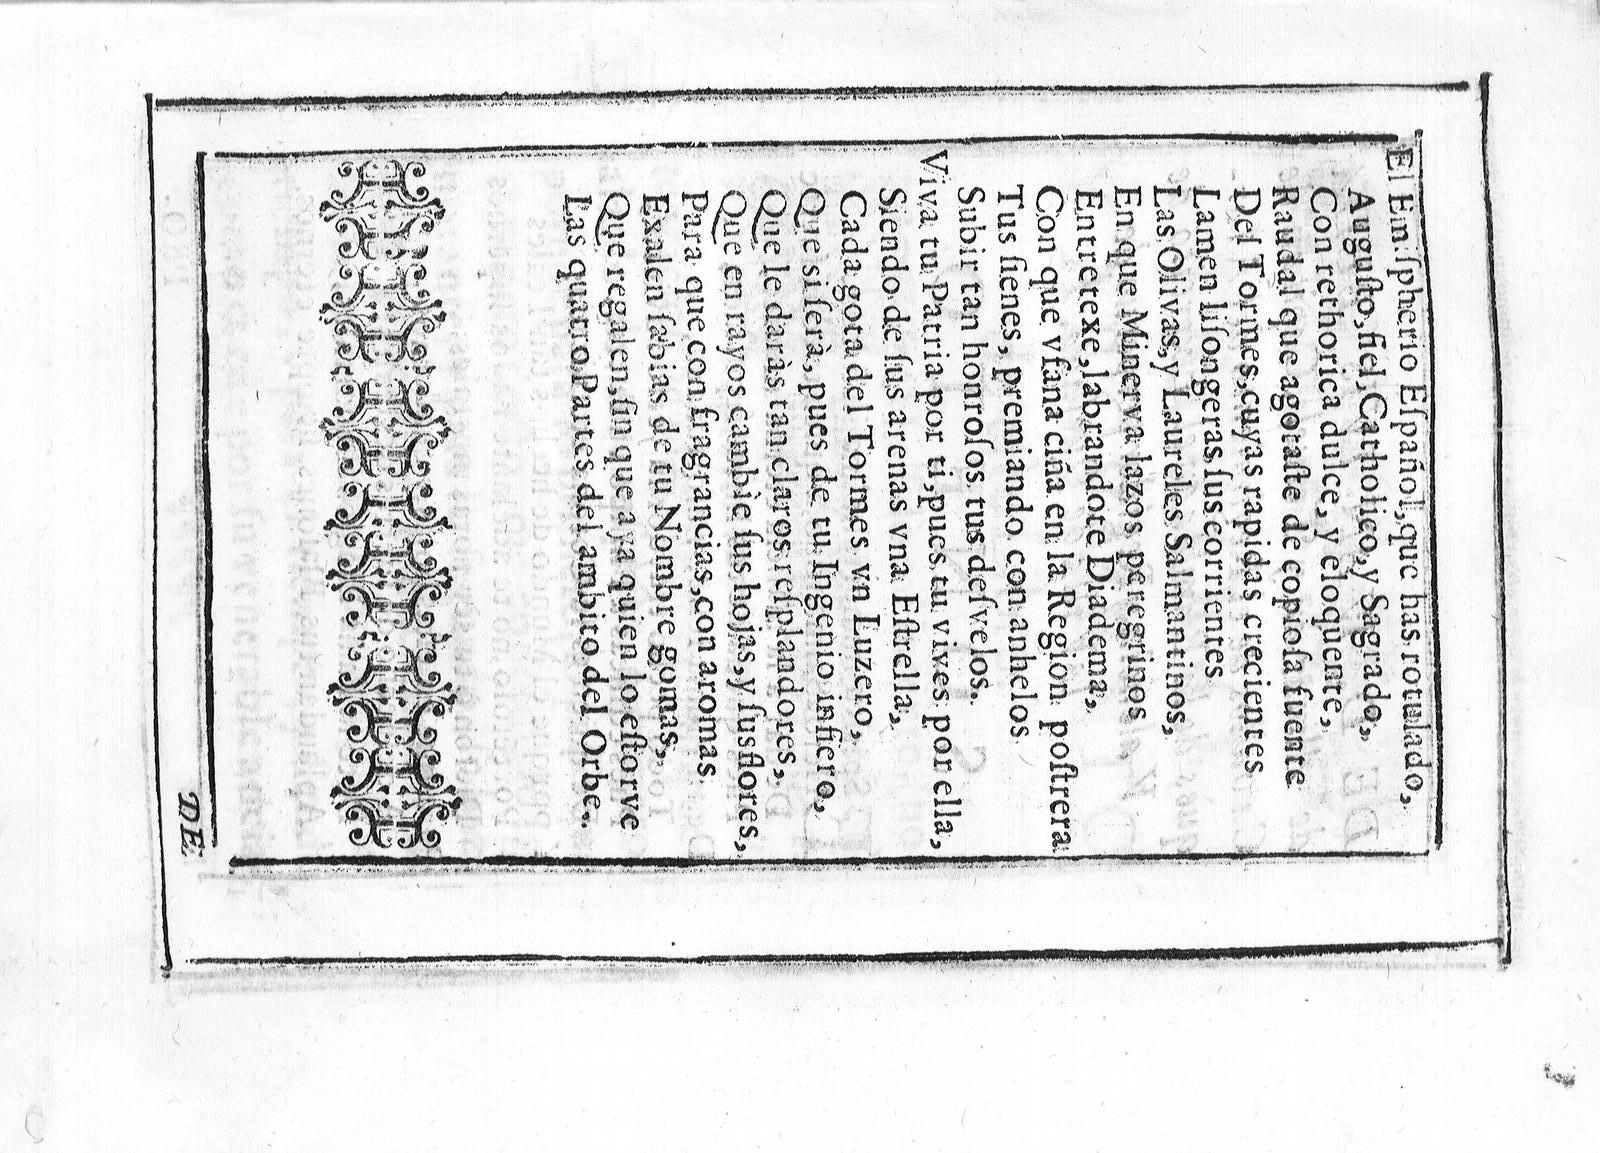 El Emiſpherio Eſpañol, que has rotulado,
Auguſto, fiel, Catholico, y Sagrado,
Con rethorica dulce, y eloquente,
Raudal que agotaſte de copioſa fuente
Del Tormes, cuyas rapidas crecientes
Lamen liſongeras ſus corrientes
Las Olivas, y Laureles Salmantinos,
En que Minerva lazos peregrinos
Entretexe, labrandote Diadema,
Con que vfana ciña en la Region poſtrera
Tus ſienes, premiando con anhelos
Subir tan honroſos tus deſvelos.
Viva tu Patria por ti, pues tu vives por ella,
Siendo de ſus arenas vna Eſtrella,
Cada gota del Tormes vn Luzero,
Que si ſerà, pues de tu Ingenio infiero,
Que le daràs tan claros reſplandores,
Que en rayos cambiè ſus hojas, y ſus flores,
Para que con fragrancias, con aromas
Exalen ſabias de tu Nombre gomas,
Que regalen, ſin que aya quien lo eſtorve
Las quatro Partes del ambito del Orbe.
DE